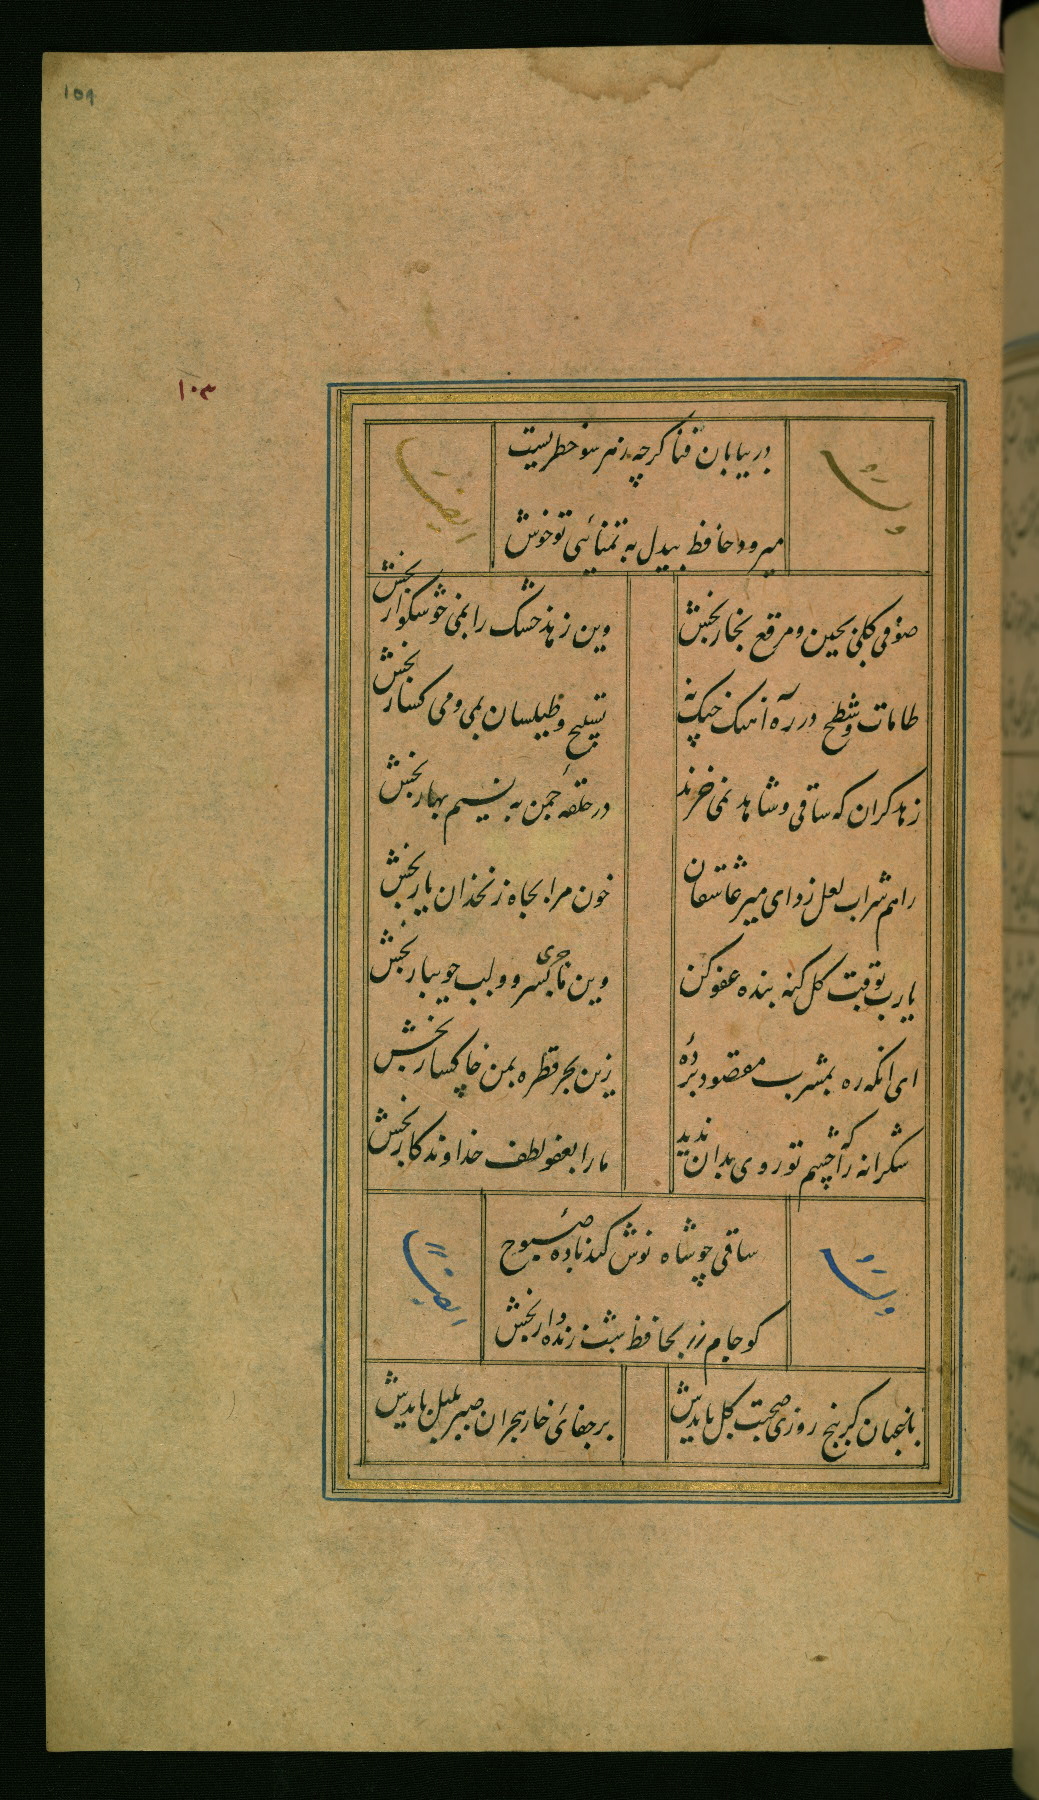 ۱۵۹
۱۰۳
وله
در بیابان فنا کرچه زهر سو خطریست
ایضا
میرود حافظ بیدل به تمنائی تو خوش
صوفی کلی بچین و مرقع بخار بخش
وین زهد خشک را بمی خوشکوار بخش
طامات و شطح در ره آهنک چنک نه
تسبیح و طیلسان بمی و می کسار بخش
زهد کران که ساقی و شاهد نمی خرند
در حلقهٔ چمن به نسیم بهار بخش
راهم شراب لعل زد ای میر عاشقان
خون مرا بجاه زنخدان یار بخش
یا رب بوقت کل کنه بنده عفو کن
وین ماجری بسرو و لب جویبار بخش
ای انکه ره بمشرب مقصود بردهٔ
زین بحر قطره بمن خاکسار بخش
شکرانه را که چشم تو روی بدان ندید
ما را بعفو لطف خداوندکار بخش
وله
ساقی چو شاه نوش کند بادهٔ صبوح
ایضا
کو جام زر بحافظ شب زنده دار بخش
باغبان کر پنج روزی صحبت کل بایدش
بر جفائ خار هجران صبر بلبل بایدش